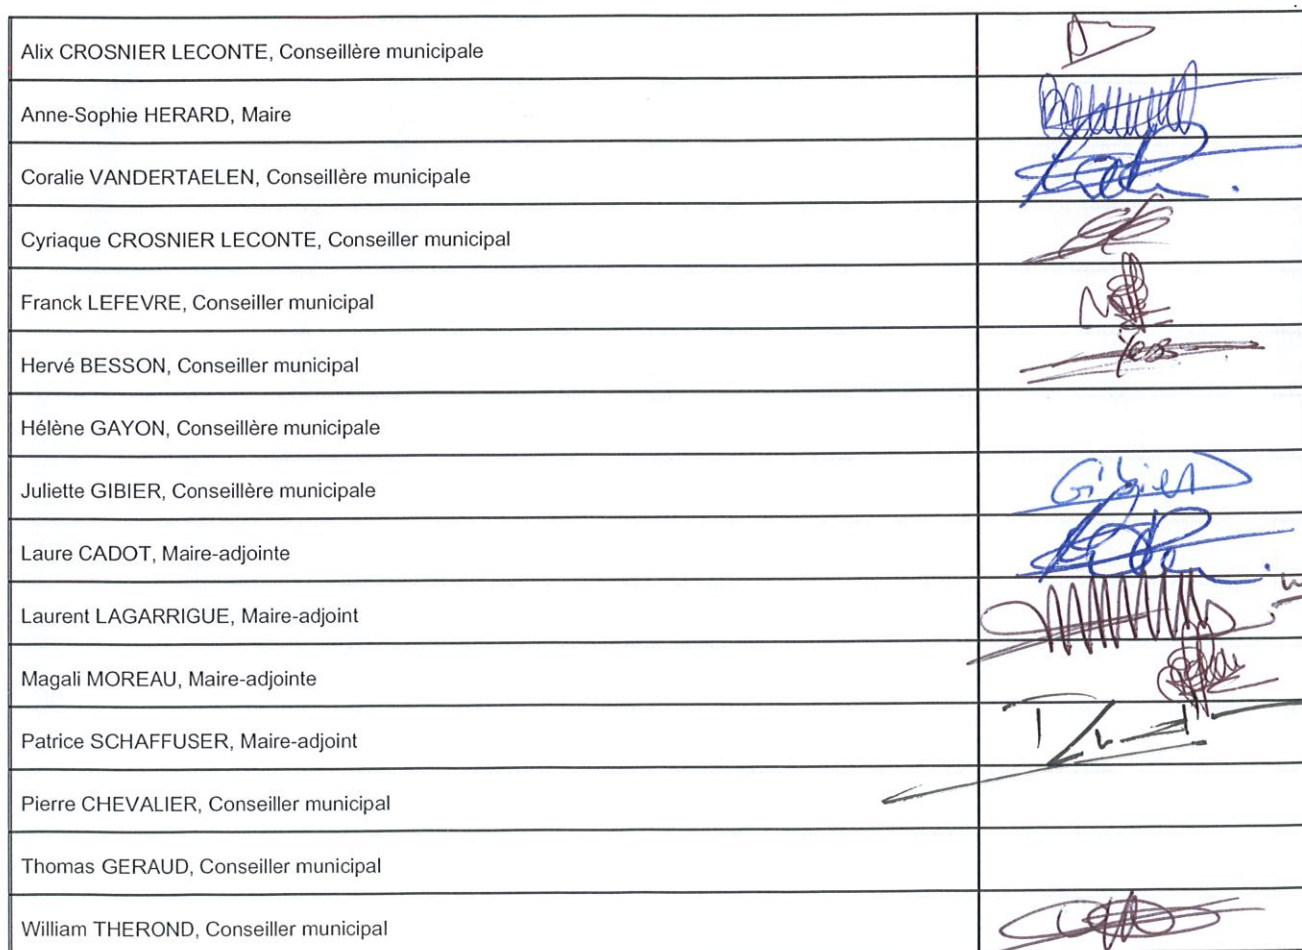 Alix CROSNIER LECONTE, Conseillère municipale
Anne-Sophie HERARD, Maire
Coralie VANDERTAELEN, Conseillère municipale
Cyriaque CROSNIER LECONTE, Conseiller municipal
Franck LEFEVRE, Conseiller municipal
Hervé BESSON, Conseiller municipal
Hélène GAYON, Conseillère municipale
Juliette GIBIER, Conseillère municipale
Gibier
Laure CADOT, Maire-adjointe
Laurent LAGARRIGUE, Maire-adjoint
Magali MOREAU, Maire-adjointe
Patrice SCHAFFUSER, Maire-adjoint
Pierre CHEVALIER, Conseiller municipal
Thomas GERAUD, Conseiller municipal
William THEROND, Conseiller municipal